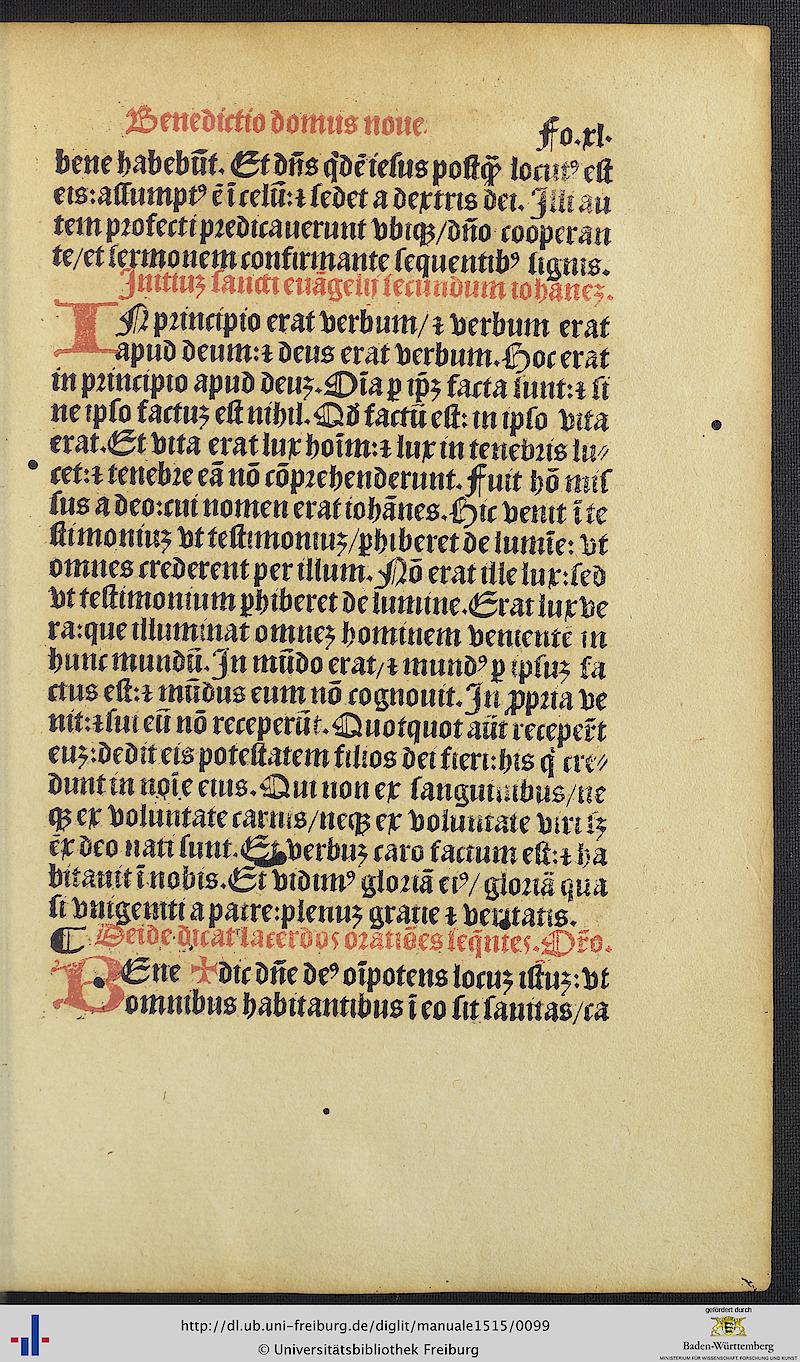 Benedictio domus noue.
Fo.xl.
bene habebūt. Et dn̄s q̄dē iesus postq̄ꝫ locutꝰ est
eis:assumptꝰ ē ī celū:⁊ sedet a dextris dei. Illi au
tem profecti predicauerunt vbiqꝫ/dn̄o cooperan
te/et sermonem confirmante sequentibꝰ signis.
Initiuꝫ sancti euāgelij secundum iohāneꝫ.
IN principio erat verbum/⁊ verbum erat
apud deum:⁊ deus erat verbum. Hoc erat
in principio apud deuꝫ. Oīa ꝑ ip̄ꝫ facta sunt:⁊ si
ne ipso factuꝫ est nihil. Qd̄ factū est: in ipso vita
erat. Et vita erat lux hoīm:⁊ lux in tenebris lu⸗
cet:⁊ tenebre eā nō cōprehenderunt. Fuit hō mis
sus a deo:cui nomen erat iohānes. Hic venit ī te
stimoniuꝫ vt testimoniuꝫ/ꝑhiberet de lumīe: vt
omnes crederent per illum. Nō erat ille lux:sed
vt testimonium ꝑhiberet de lumine. Erat lux ve
ra:que illuminat omneꝫ hominem venientē in
hunc mundū. In mūdo erat/⁊ mundꝰ ꝑ ipsuꝫ fa
ctus est:⁊ mūdus eum nō cognouit. In ꝓpria ve
nit:⁊ sui eū nō receperūt. Quotquot aūt recepert̄
euꝫ:dedit eis potestatem filios dei fieri:his q̇ cre⸗
dunt in noīe eius. Qui non ex sanguinibus/ne
qꝫ ex voluntate carnis/neqꝫ ex voluntate viri sꝫ
ex deo nati sunt. Et verbuꝫ caro factum est:⁊ ha
bitauit ī nobis. Et vidimꝰ gloriā eiꝰ/ gloriā qua
si vnigeniti a patre:plenuꝫ gratie ⁊ veritatis.
¶ Deīde dicat sacerdos oratiōes seq̄ntes. Or̄o.
BEne ✠dic dn̄e deꝰ oīpotens locuꝫ istuꝫ:vt
omnibus habitantibus ī eo sit sanitas/ca
http://dl.ub.uni-freiburg.de/diglit/manuale1515/0099
© Universitätsbibliothek Freiburg
gefördert durch
Baden-Württemberg
MINISTERIUM FÜR WISSENSCHAFT, FORSCHUNG UND KUNST